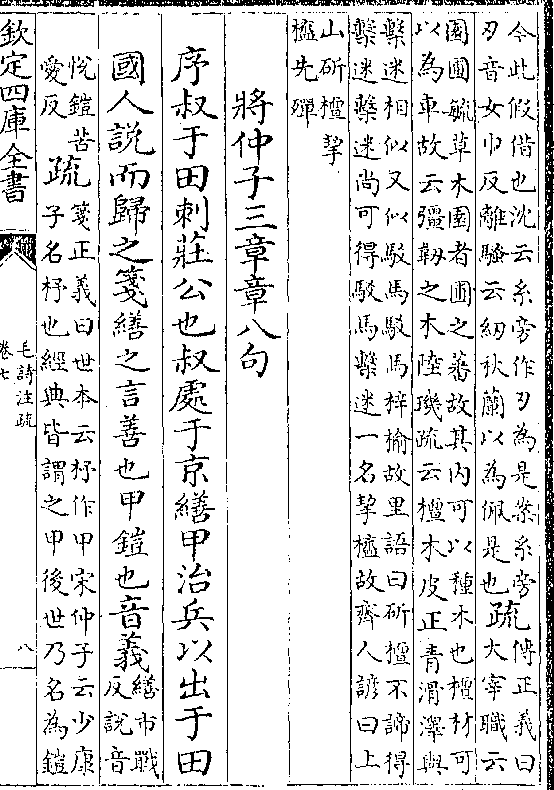 今此假借也沈云糸旁作刃為是案糸旁
刃音女巾反離騷云紉秋蘭以為佩是也
疏
傳正義曰
大宰職云
園圃毓草木園者圃之蕃故其内可以種木也檀材可
以為車故云彊韌之木陸璣疏云檀木皮正青滑澤與
檕迷相似又似駮馬駮馬梓榆故里語曰斫檀不諦得
檕迷檕迷尚可得駮馬檕迷一名挈橀故齊人諺曰上
山斫檀挈
橀先殫
將仲子三章章八句
序叔于田刺莊公也叔處于京繕甲治兵以出于田
國人說而歸之箋繕之言善也甲鎧也音義
繕市戰
反說音
悅鎧苦
愛反
疏
箋正義曰世本云杼作甲宋仲子云少康
子名杼也經典皆謂之甲後世乃名為鎧
欽定四庫全書
毛詩注疏
卷七
八